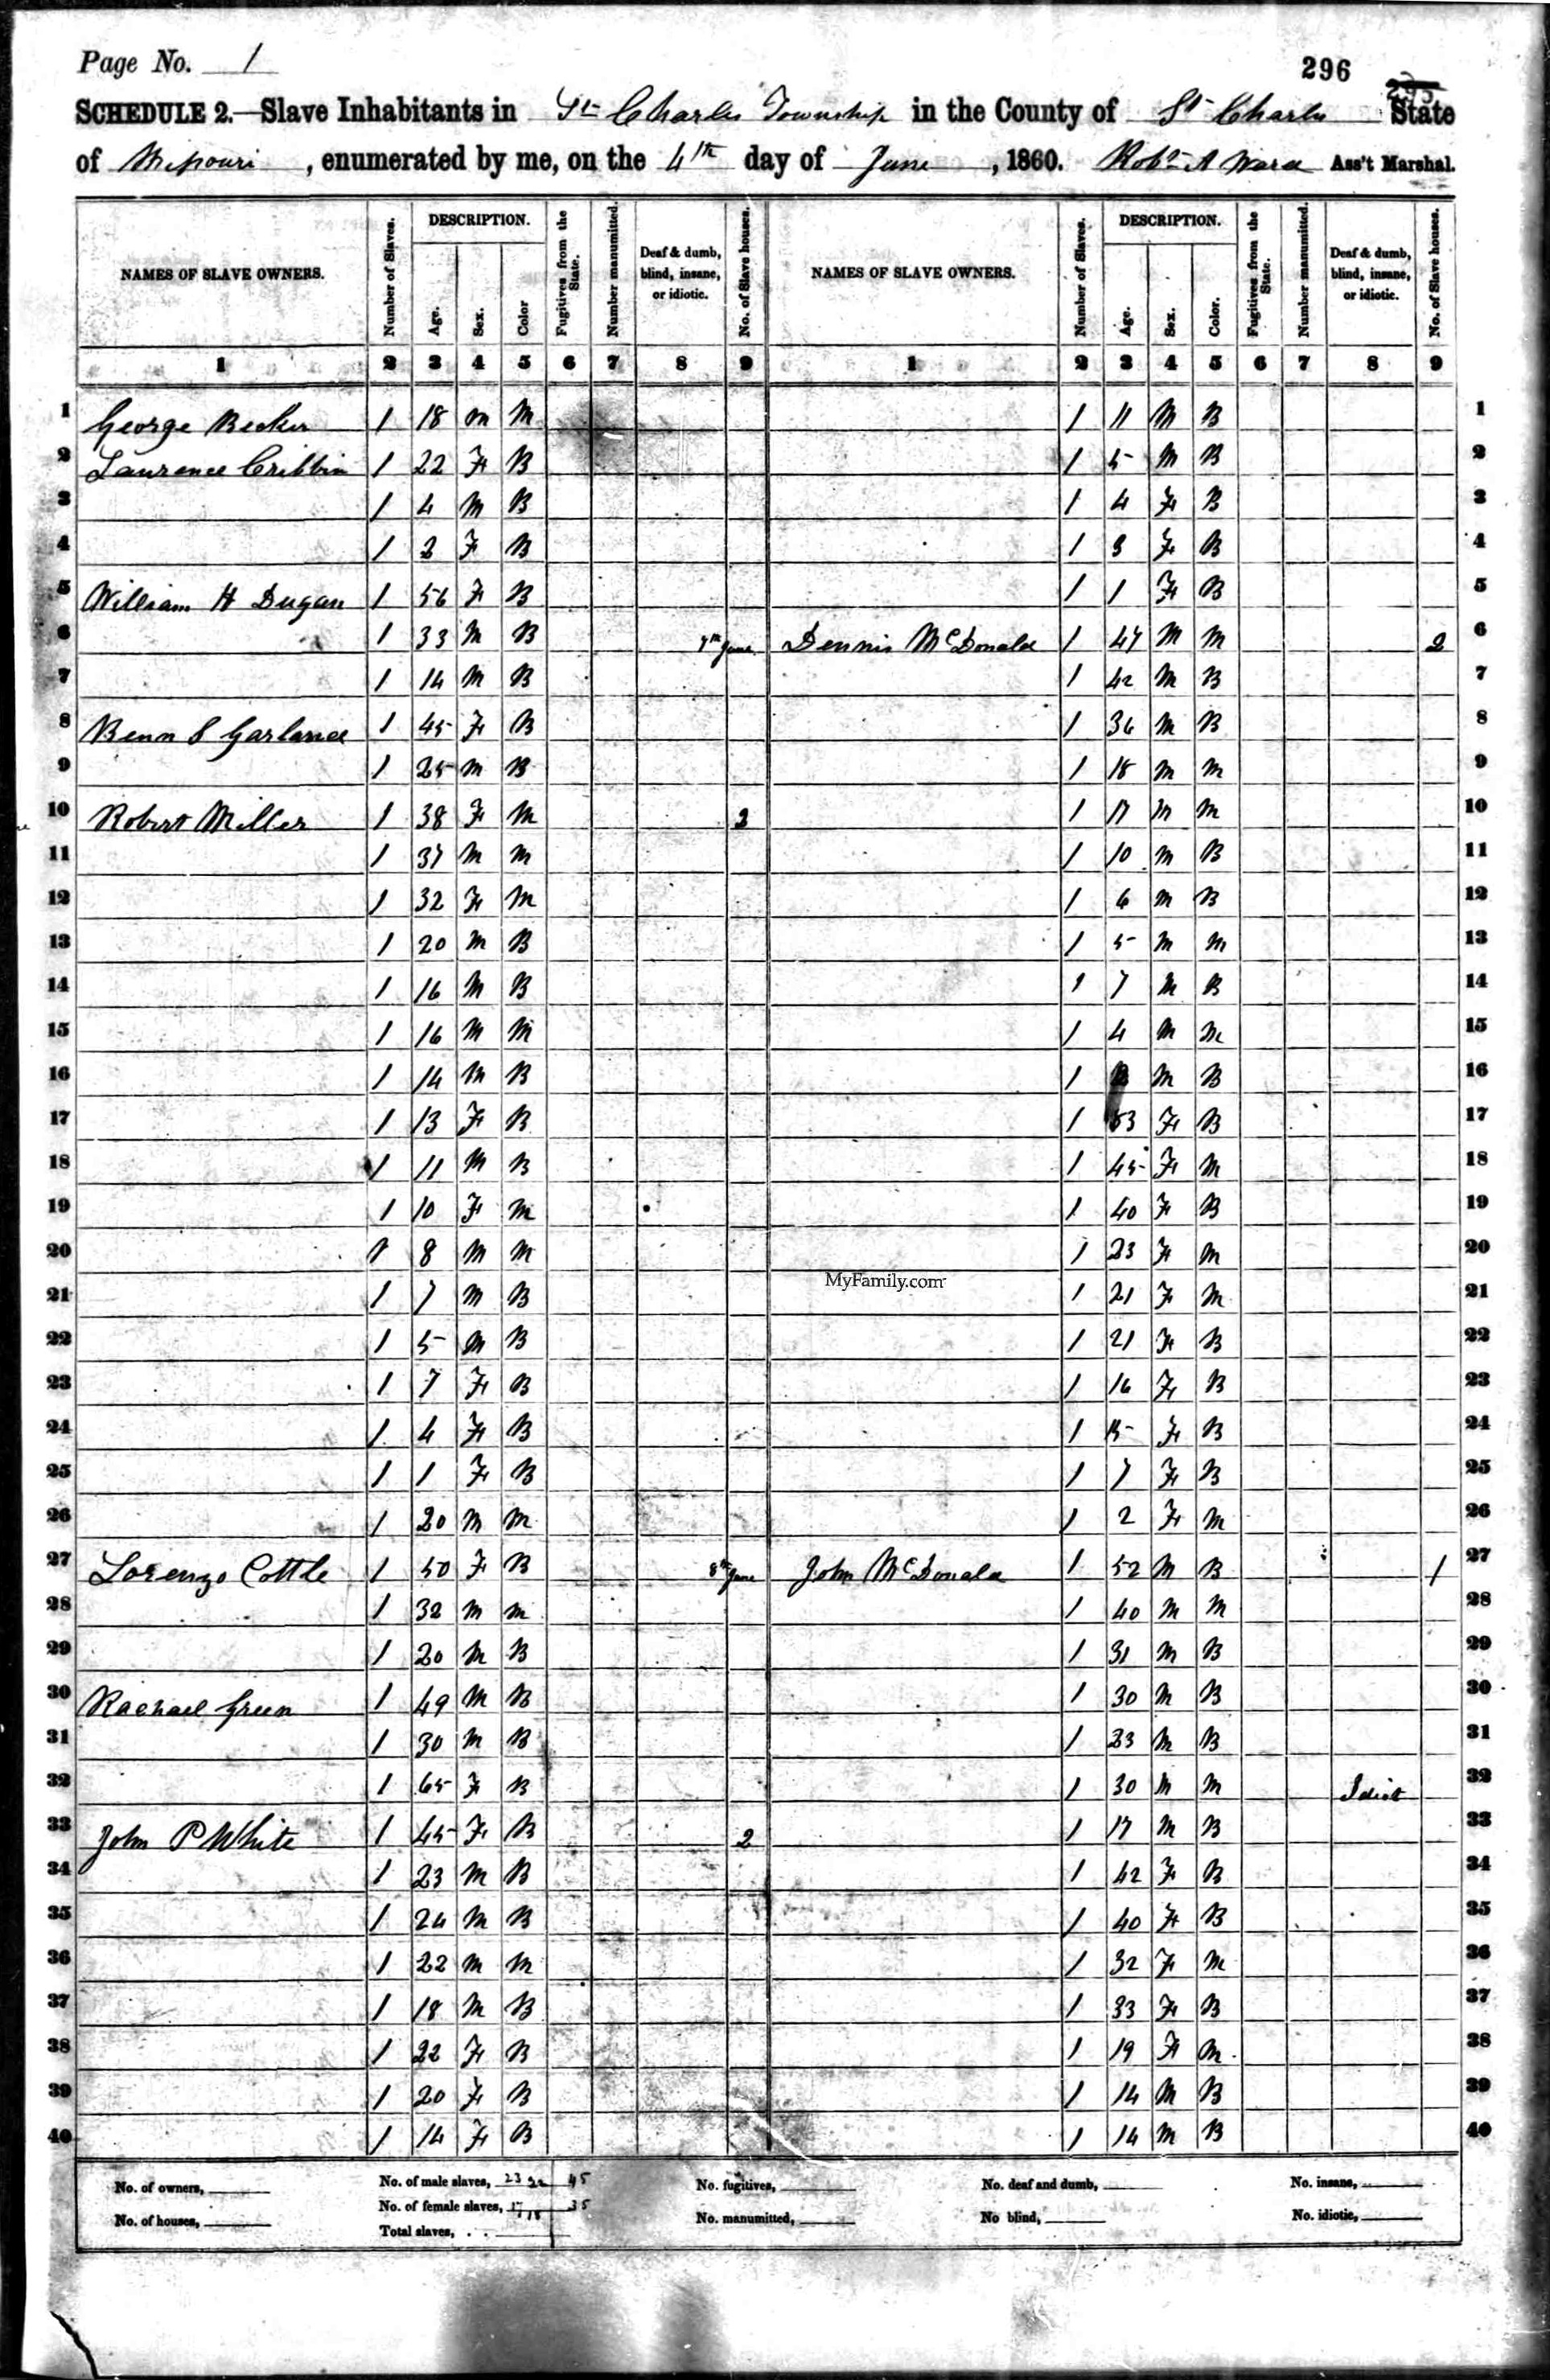 Page No. 1
296
295
SCHEDULE 2.—Slave Inhabitants in St Charles Township in the County of St Charles State
of Missouri, enumerated by me, on the 4th day of June, 1860. Robt A Ward Ass't Marshal.
NAMES OF SLAVE OWNERS. Number of Slaves. DESCRIPTION. Age. Sex. Color Fugitives from the State. Number manumitted. Deaf & dumb, blind, insane, or idiotic. No. of Slave houses. NAMES OF SLAVE OWNERS. Number of Slaves. DESCRIPTION. Age. Sex. Color. Fugitives from the State. Number manumitted. Deaf & dumb, blind, insane, or idiotic. No. of Slave houses.
1 2 3 4 5 6 7 8 9 1 2 3 4 5 6 7 8 9
1 George Becker 1 18 M M 1 11 M B 1
2 Laurence Cribbin 1 22 F B 1 5 M B 2
3 1 4 M B 1 4 F B 3
4 1 2 F B 1 3 F B 4
5 William H Dugan 1 56 F B 1 1 F B 5
6 1 33 M B 7th June Dennis McDonald 1 47 M M 2 6
7 1 14 M B 1 42 M B 7
8 Benn S Garland 1 45 F B 1 36 M B 8
9 1 25 M B 1 18 M M 9
10 Robert Miller 1 38 F M 3 1 17 M M 10
11 1 37 M M 1 10 M B 11
12 1 32 F M 1 6 M B 12
13 1 20 M B 1 5 M M 13
14 1 16 M B 1 7 M B 14
15 1 16 M M 1 4 M M 15
16 1 14 M B 1 M B 16
17 1 13 F B 1 53 F B 17
18 1 11 M B 1 45 F M 18
19 1 10 F M 1 40 F B 19
20 1 8 M M 1 23 F M 20
MyFamily.com
21 1 7 M B 1 21 F M 21
22 1 5 M B 1 21 F B 22
23 1 7 F B 1 16 F B 23
24 1 4 F B 1 15 F B 24
25 1 1 F B 1 7 F B 25
26 1 20 M M 1 2 F M 26
27 Lorenzo Cottle 1 50 F B 8th June John McDonald 1 52 M B 1 27
28 1 32 M M 1 40 M M 28
29 1 20 M B 1 31 M B 29
30 Rachael Green 1 49 M B 1 30 M B 30
31 1 30 M B 1 23 M B 31
32 1 65 F B 1 30 M M Idiot 32
33 John P White 1 45 F B 2 1 17 M B 33
34 1 23 M B 1 42 F B 34
35 1 24 M B 1 40 F B 35
36 1 22 M M 1 32 F M 36
37 1 18 M B 1 33 F B 37
38 1 22 F B 1 19 F M 38
39 1 20 F B 1 14 M B 39
40 1 14 F B 1 14 M B 40
No. of owners, No. of male slaves, 23 22 45 No. fugitives, No. deaf and dumb, No. insane,
No. of houses, No. of female slaves, 17 18 35 No. manumitted, No blind, No. idiotic,
Total slaves,